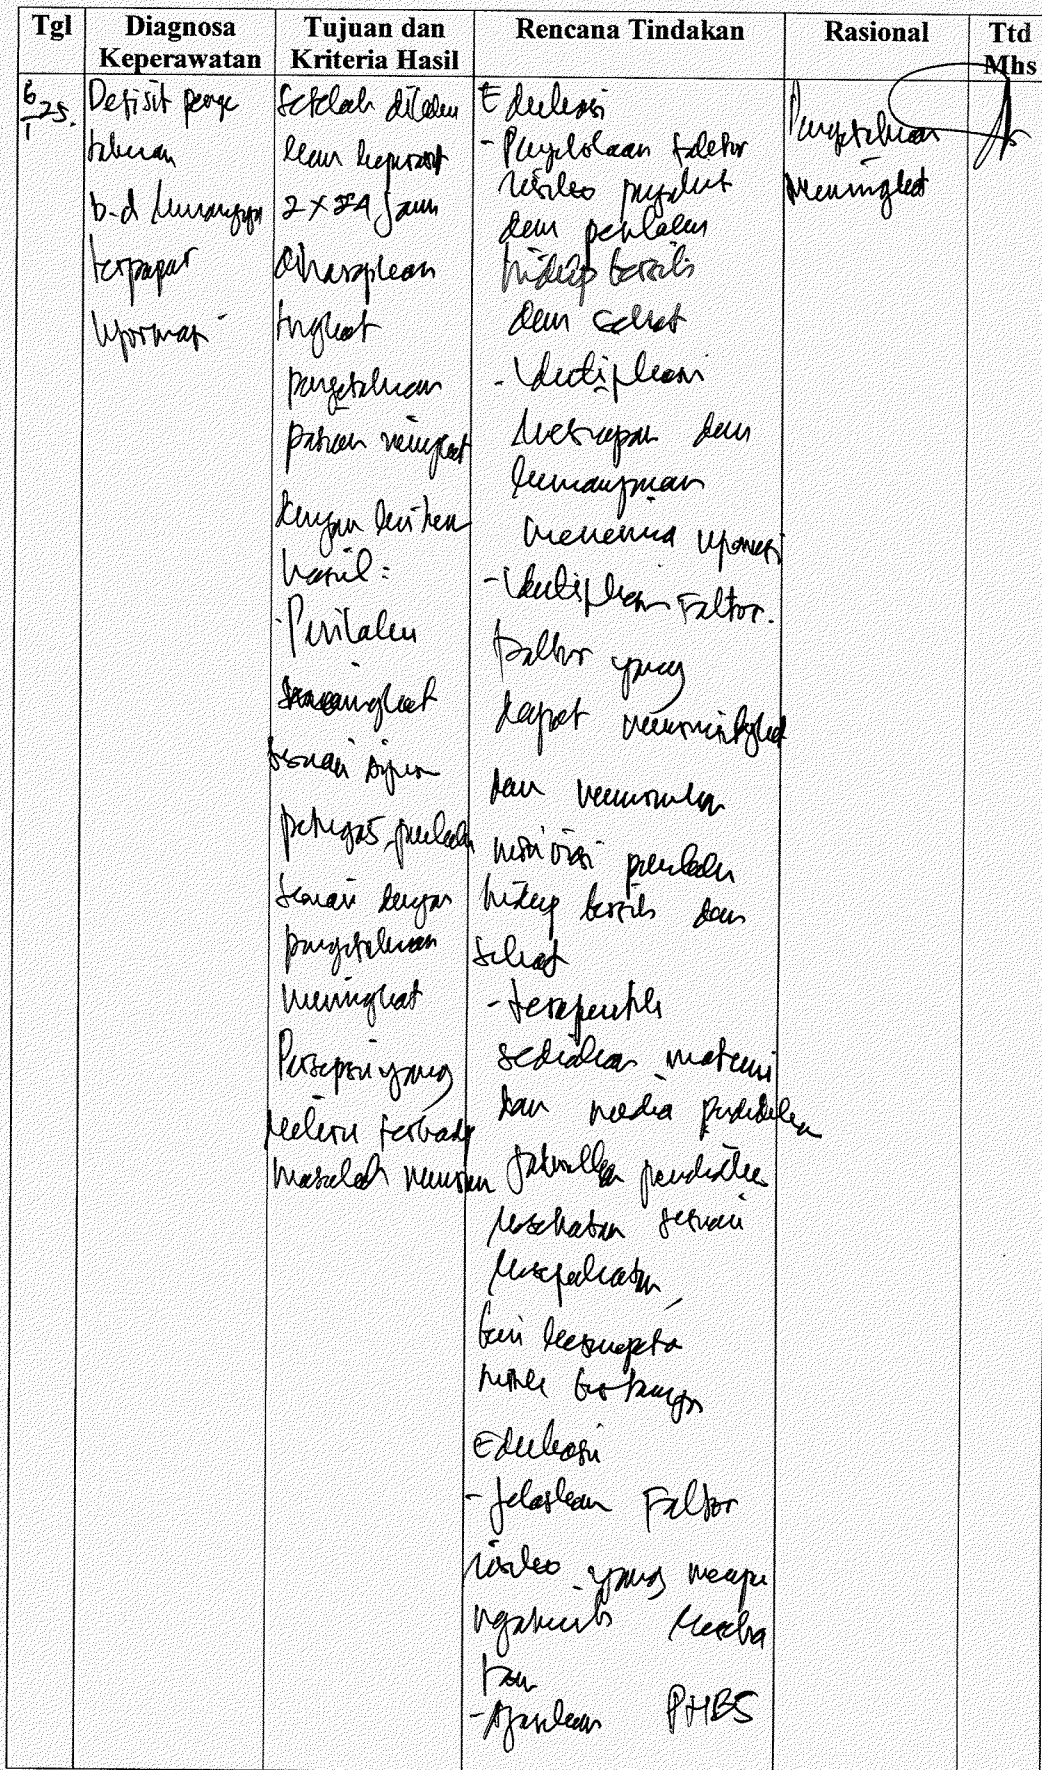 Tgl
Diagnosa
Keperawatan
Tujuan dan
Kriteria Hasil
Rencana Tindakan
Rasional
Ttd
Mhs
6/1 25.
Defisit penge
tahuan
b.d kurangnya
terpapar
informasi
Setelah dilaku
kan keperawat
2 x 24 jam
diharapkan
tingkat
pengetahuan
pasien meningkat
dengan kriteria
hasil:
- Perilaku
meningkat
sesuai anjuran
petugas, perilaku
sesuai dengan
pengetahuan
meningkat
Persepsi yang
keliru terhadap
masalah menurun
Edukasi
- Pengelolaan faktor
risiko penyakit
dan perilaku
hidup bersih
dan sehat
- Identifikasi
kesiapan dan
kemampuan
menerima informasi
- Identifikasi Faktor.
faktor yang
dapat meningkatkan
dan menurunkan
motivasi perilaku
hidup bersih dan
sehat
- terapeutik
sediakan materi
dan media pendidikan
jadwalkan pendidikan
kesehatan sesuai
kesepakatan
beri kesempatan
untuk bertanya
Edukasi
- Jelaskan Faktor
risiko yang mempe
ngaruhi keseha
tan
- Ajarkan PHBS
Pengetahuan
meningkat